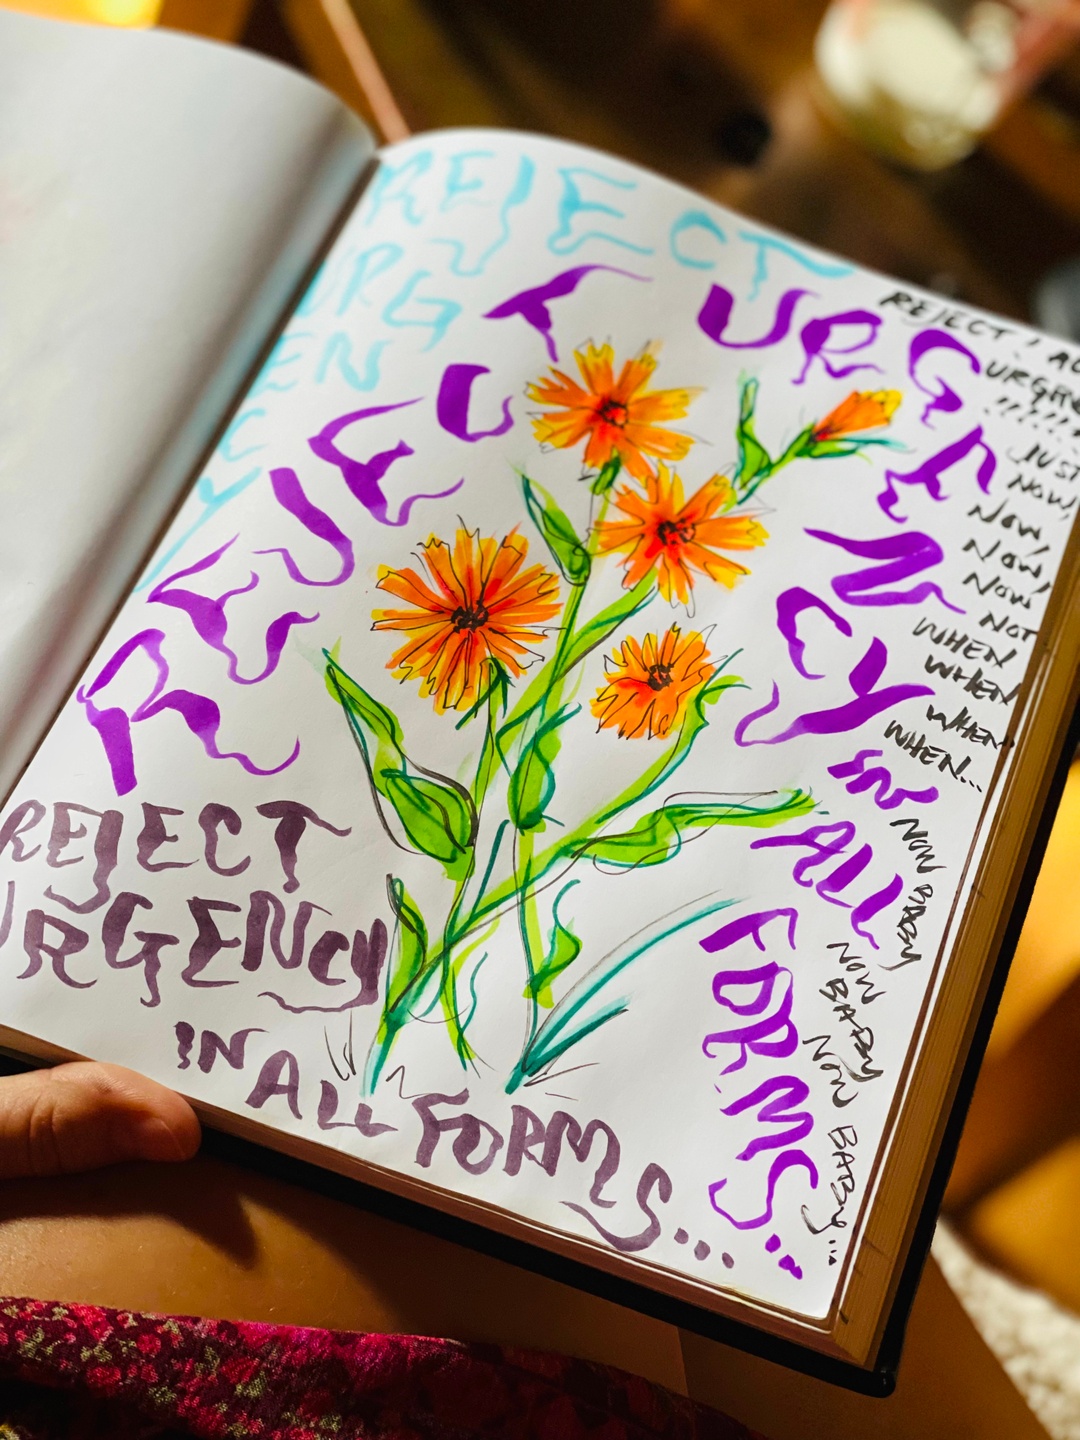 REJECT
URG
EN
C
Y
REJECT URGENCY
IN
ALL
FORMS...
REJECT
URGENCY
IN ALL FORMS...
REJECT,
!!!!!
JUST
NOW,
NOW,
NOW,
NOW,
NOT
WHEN
WHEN
WHEN
WHEN...
NOW BABY
NOW BABY
NOW BABY...